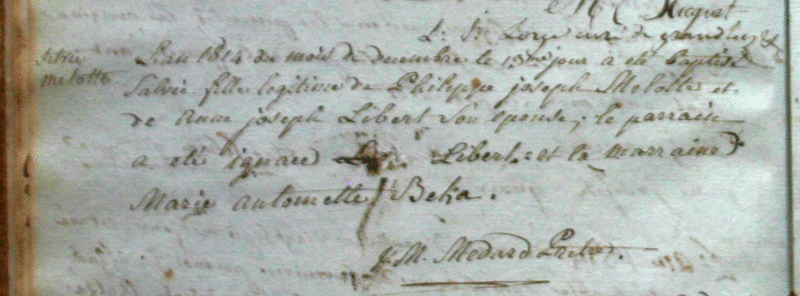 Ricquet
L. J. curé de grand
Melotte
L'an 1814 du mois de decembre le 13me jour a eté baptisé
Salvie fille legitime de Philippe joseph Melotte et
de Anne joseph Libert son epouse; le parrain
a eté ignace Libert: et la marraine
Marie antoinette Beka.
J. M. Medard Pretre.